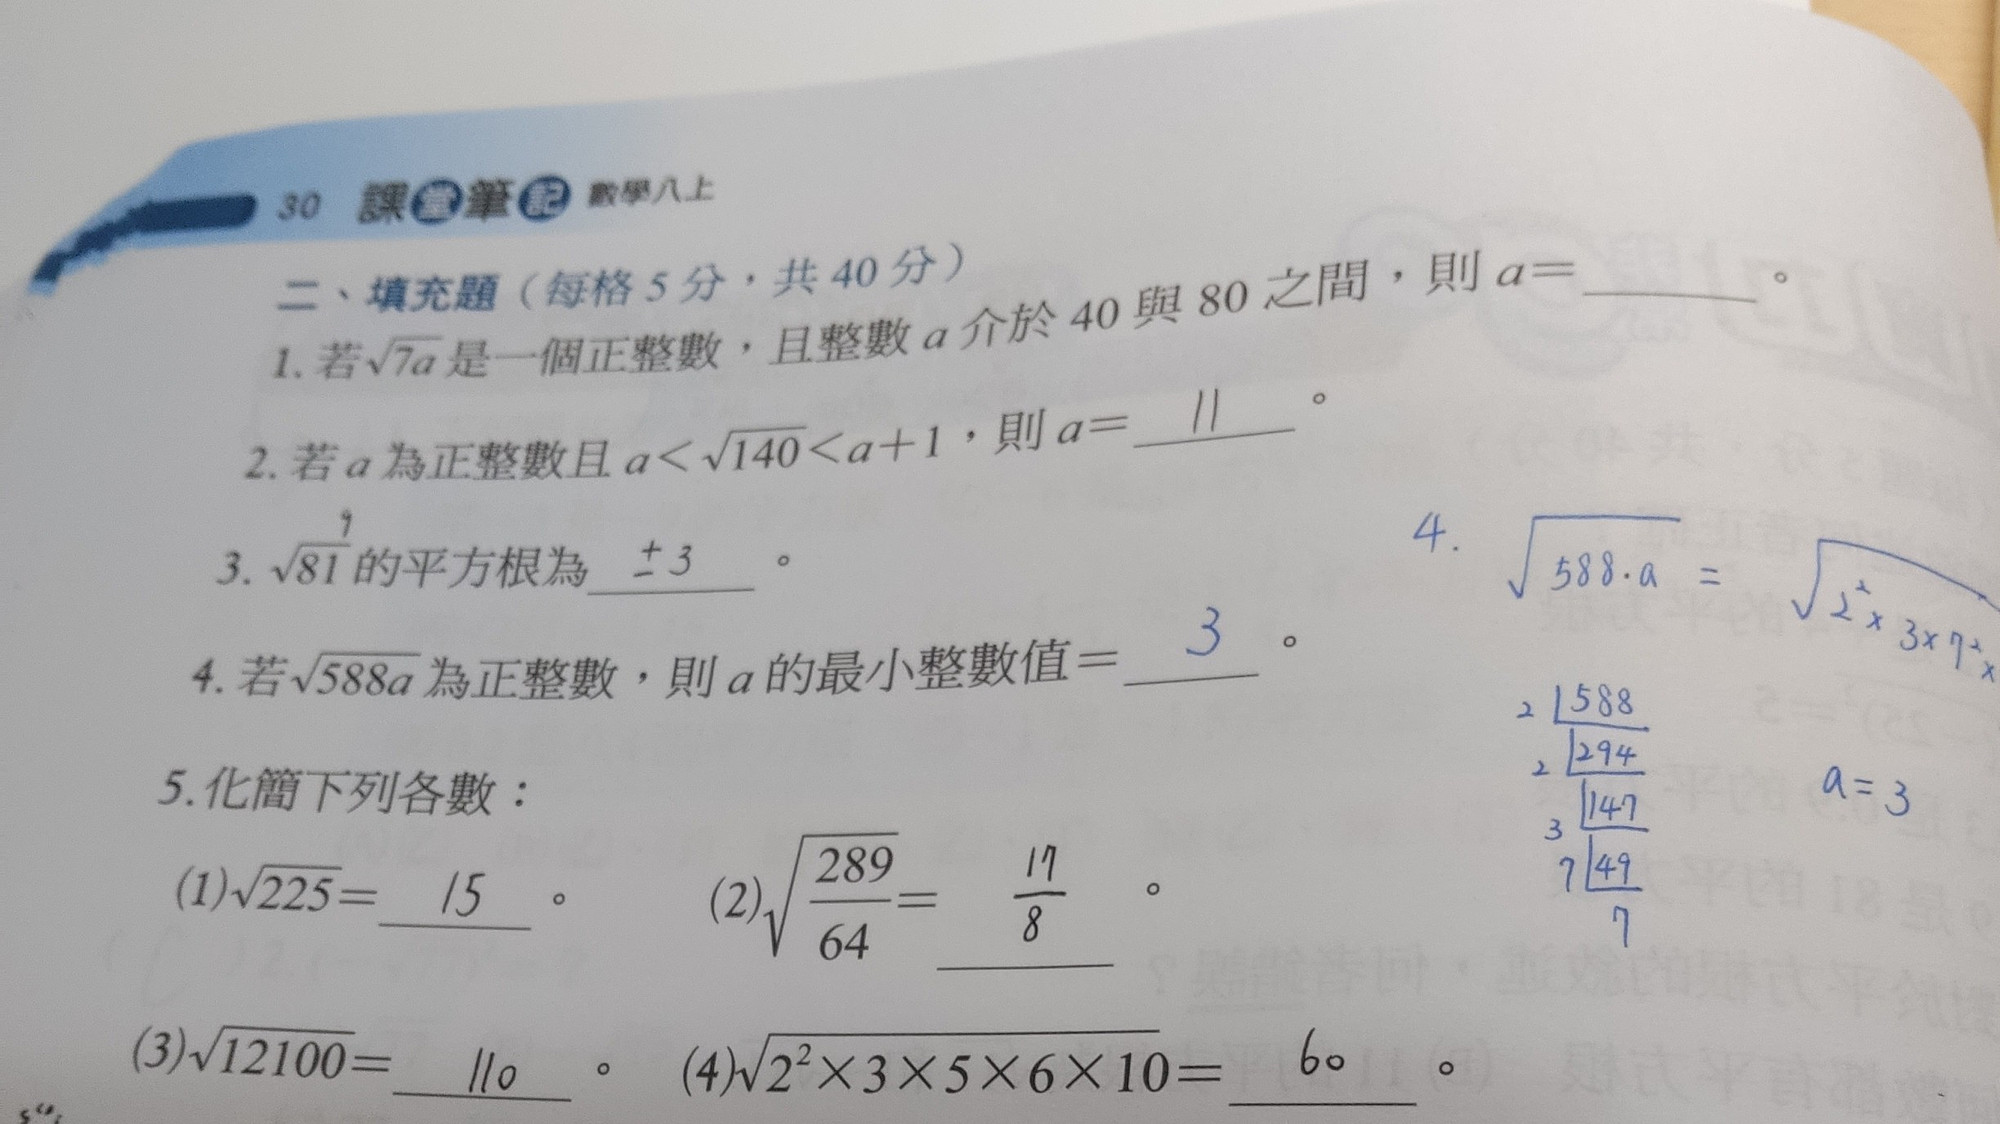 30 課堂筆記 數學八上
二、填充題（每格 5 分，共 40 分）
1. 若√7a 是一個正整數，且整數 a 介於 40 與 80 之間，則 a＝______。
2. 若 a 為正整數且 a＜√140＜a＋1，則 a＝ 11 。
9
3. √81 的平方根為 ±3 。
4. 若√588a 為正整數，則 a 的最小整數值＝ 3 。
5. 化簡下列各數：
(1)√225＝ 15 。 (2)√(289/64)＝ 17/8 。
(3)√12100＝ 110 。 (4)√2²×3×5×6×10＝ 60 。
4. √588·a = √2²×3×7²×
2 588
2 294
3 147
7 49
7
a=3